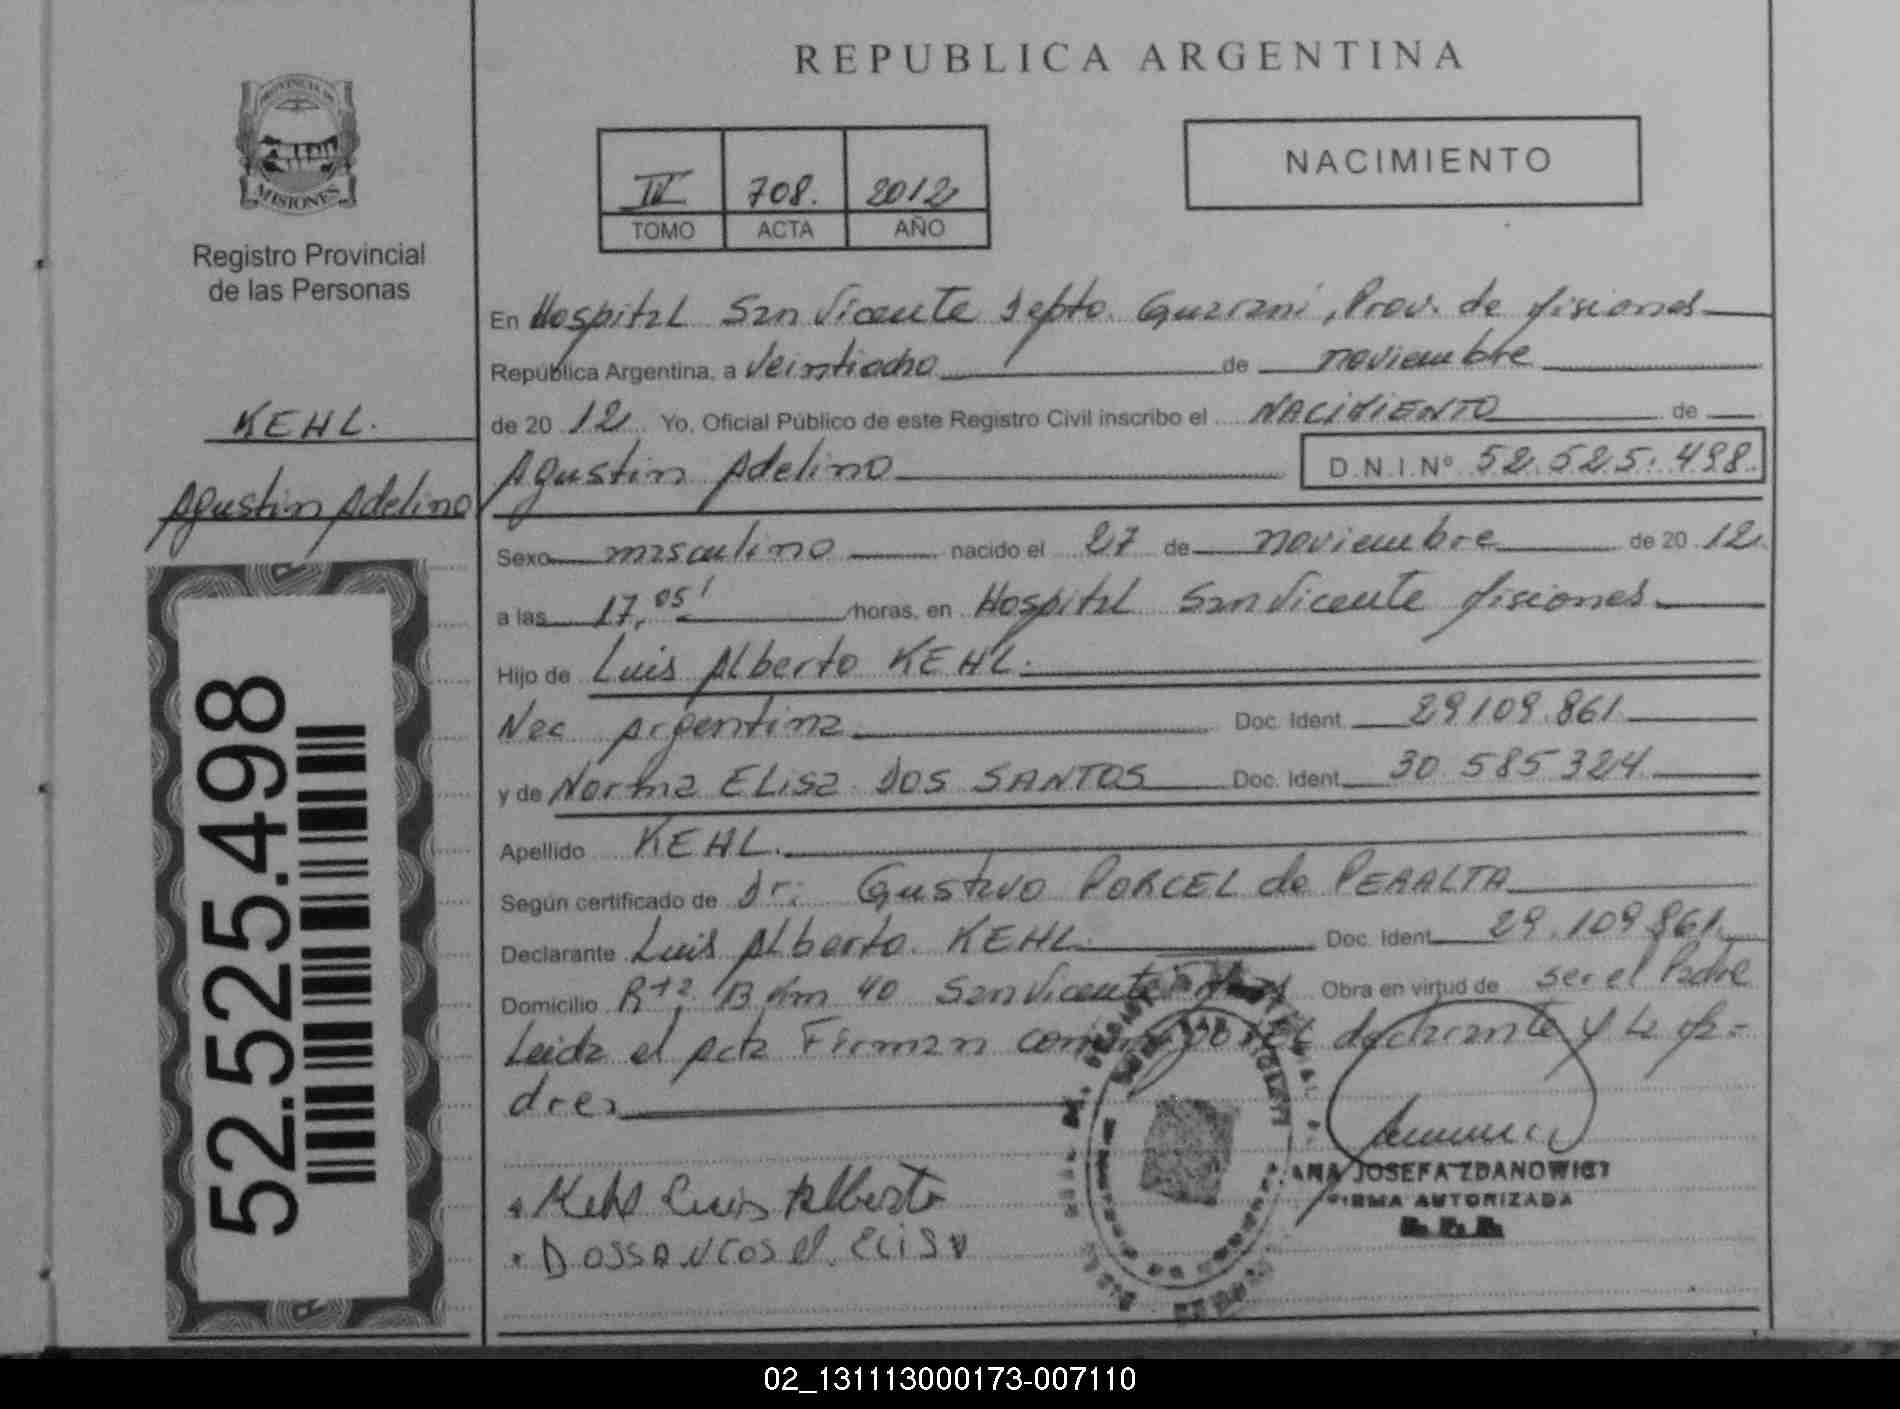 REPUBLICA ARGENTINA
PROVINCIA DE
MISIONES
Registro Provincial
de las Personas
IV 708. 2012
TOMO ACTA AÑO
NACIMIENTO
En Hospital San Vicente Depto. Guarani, Prov. de Misiones
República Argentina, a Veintiocho de noviembre
de 20 12 Yo, Oficial Público de este Registro Civil inscribo el NACIMIENTO de
KEHL.
Agustin Adelino D.N.I.Nº 52.525.498
Agustin Adelino
Sexo masculino nacido el 27 de noviembre de 20 12
a las 17,05' horas, en Hospital San Vicente Misiones
Hijo de Luis Alberto KEHL.
Nac Argentina Doc. Ident. 29109.861
y de Norma ELisa DOS SANTOS Doc. Ident. 30 585 324
Apellido KEHL.
Según certificado de Dr: Gustavo PORCEL de PERALTA
Declarante Luis Alberto KEHL Doc. Ident. 29.109.861
Domicilio Rta. 13 Km 40 San Vicente Obra en virtud de ser el Padre
Leida el Acta Firman conmigo el declarante y la Ma=
dre
Kehl Luis Alberto
ANA JOSEFA ZDANOWICZ
FIRMA AUTORIZADA
52.525.498
02_131113000173-007110